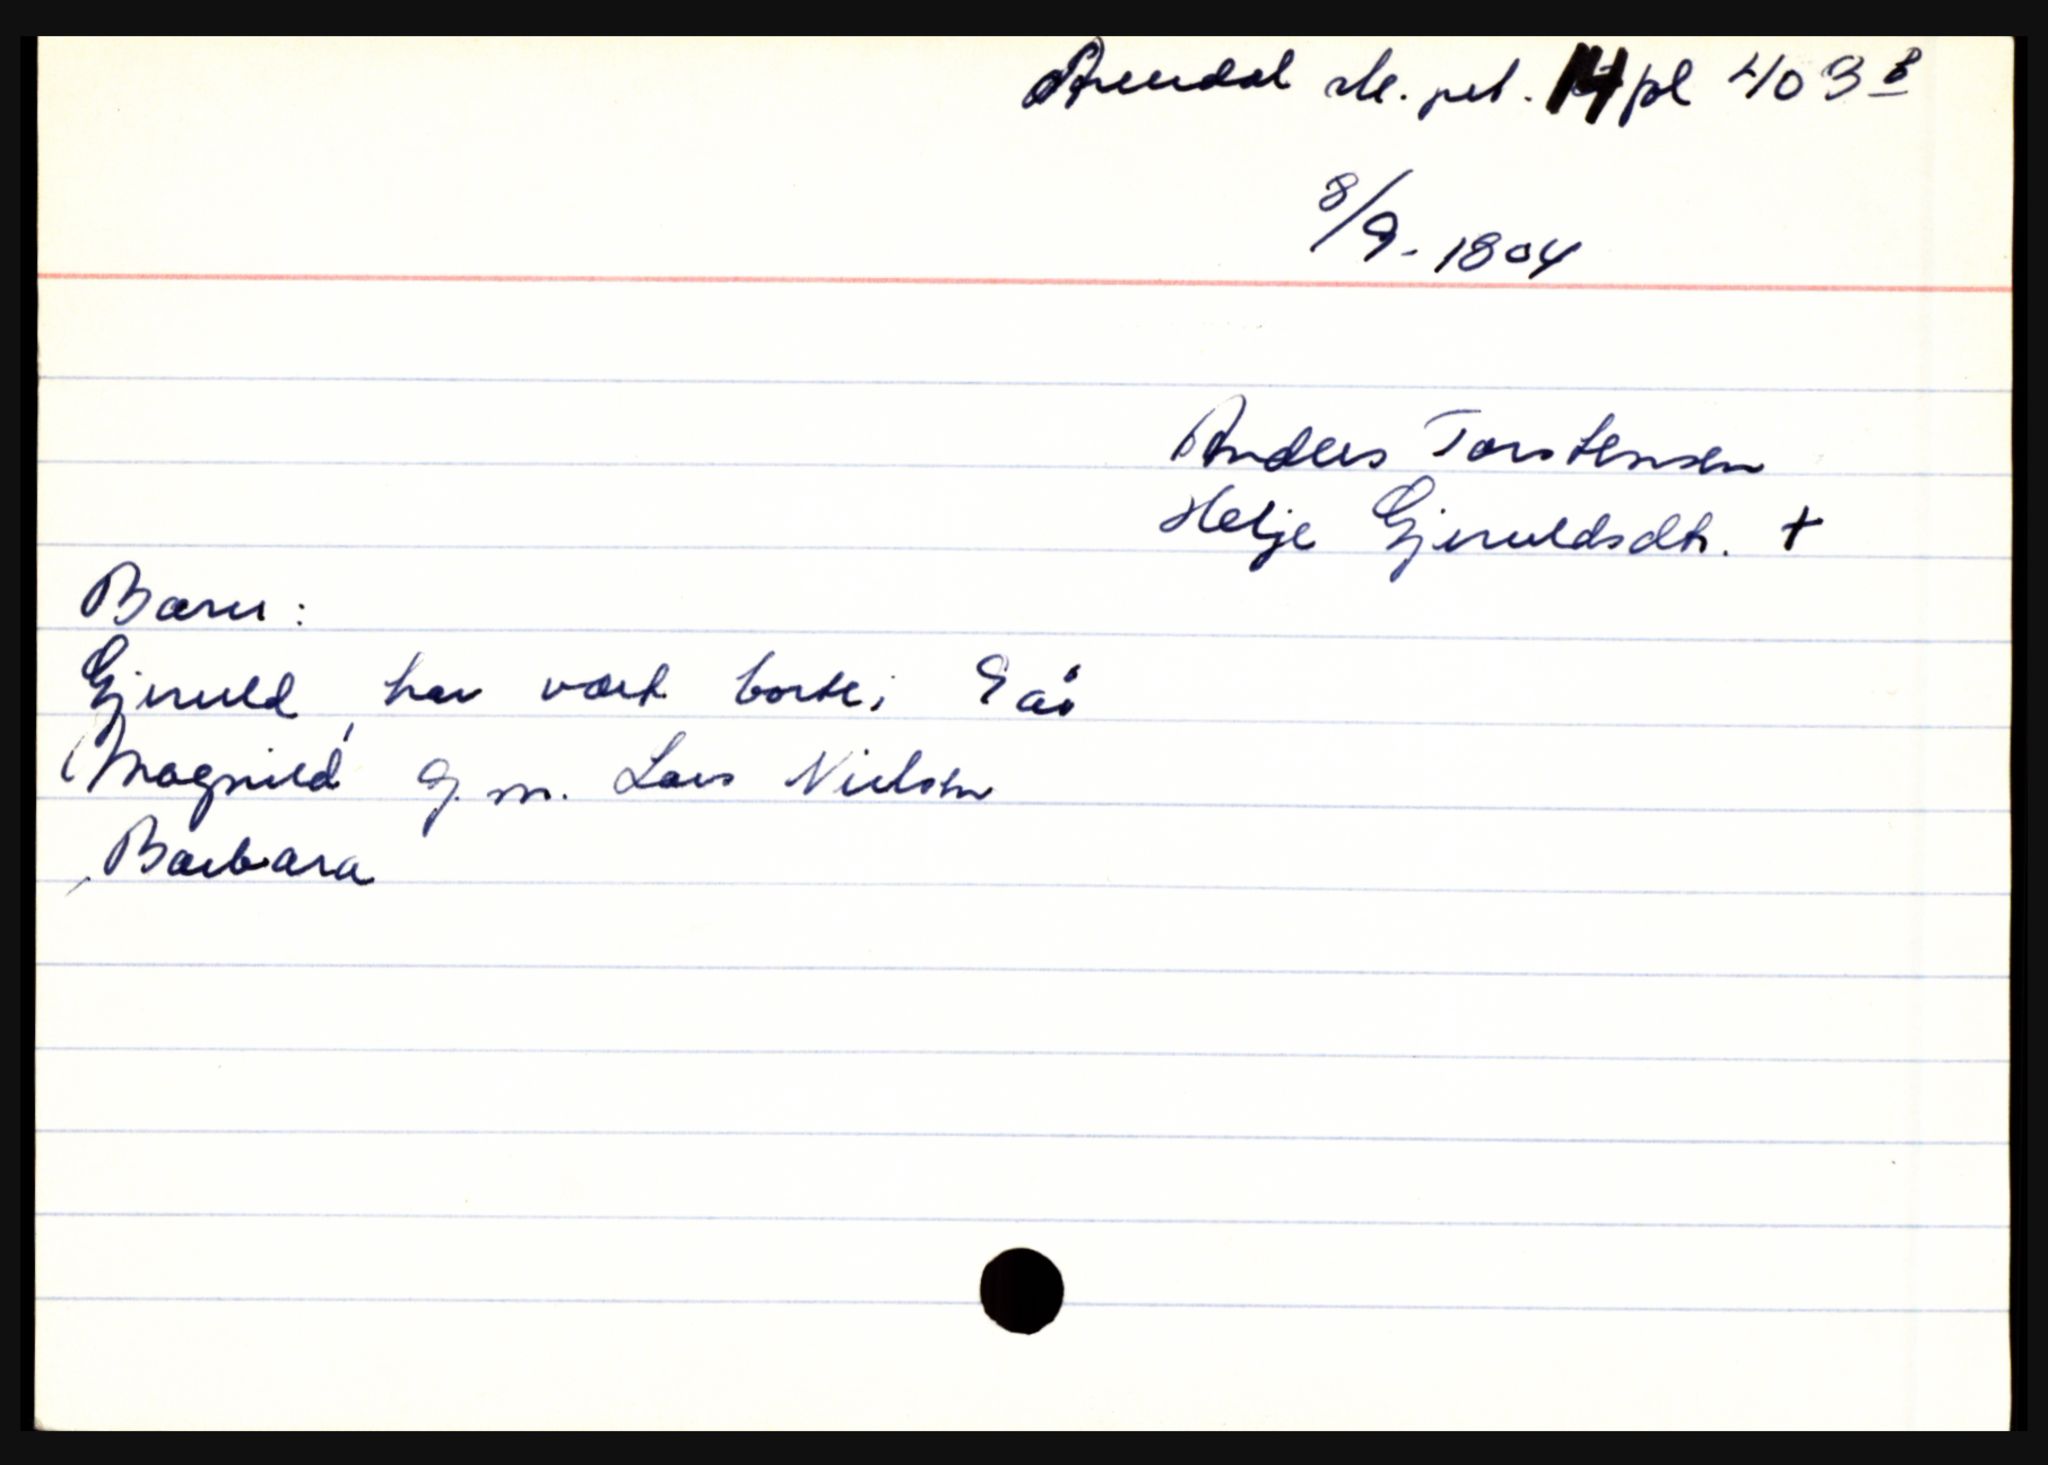 Arendal sk. prt. 14 pl 403 B
8/9-1804
Anders Torstensen
Helje Gjeruldsdtr. +
Barn:
Gjeruld, har vært borte i 9 år
Magnild g. m. Lars Nielsen
Barbara